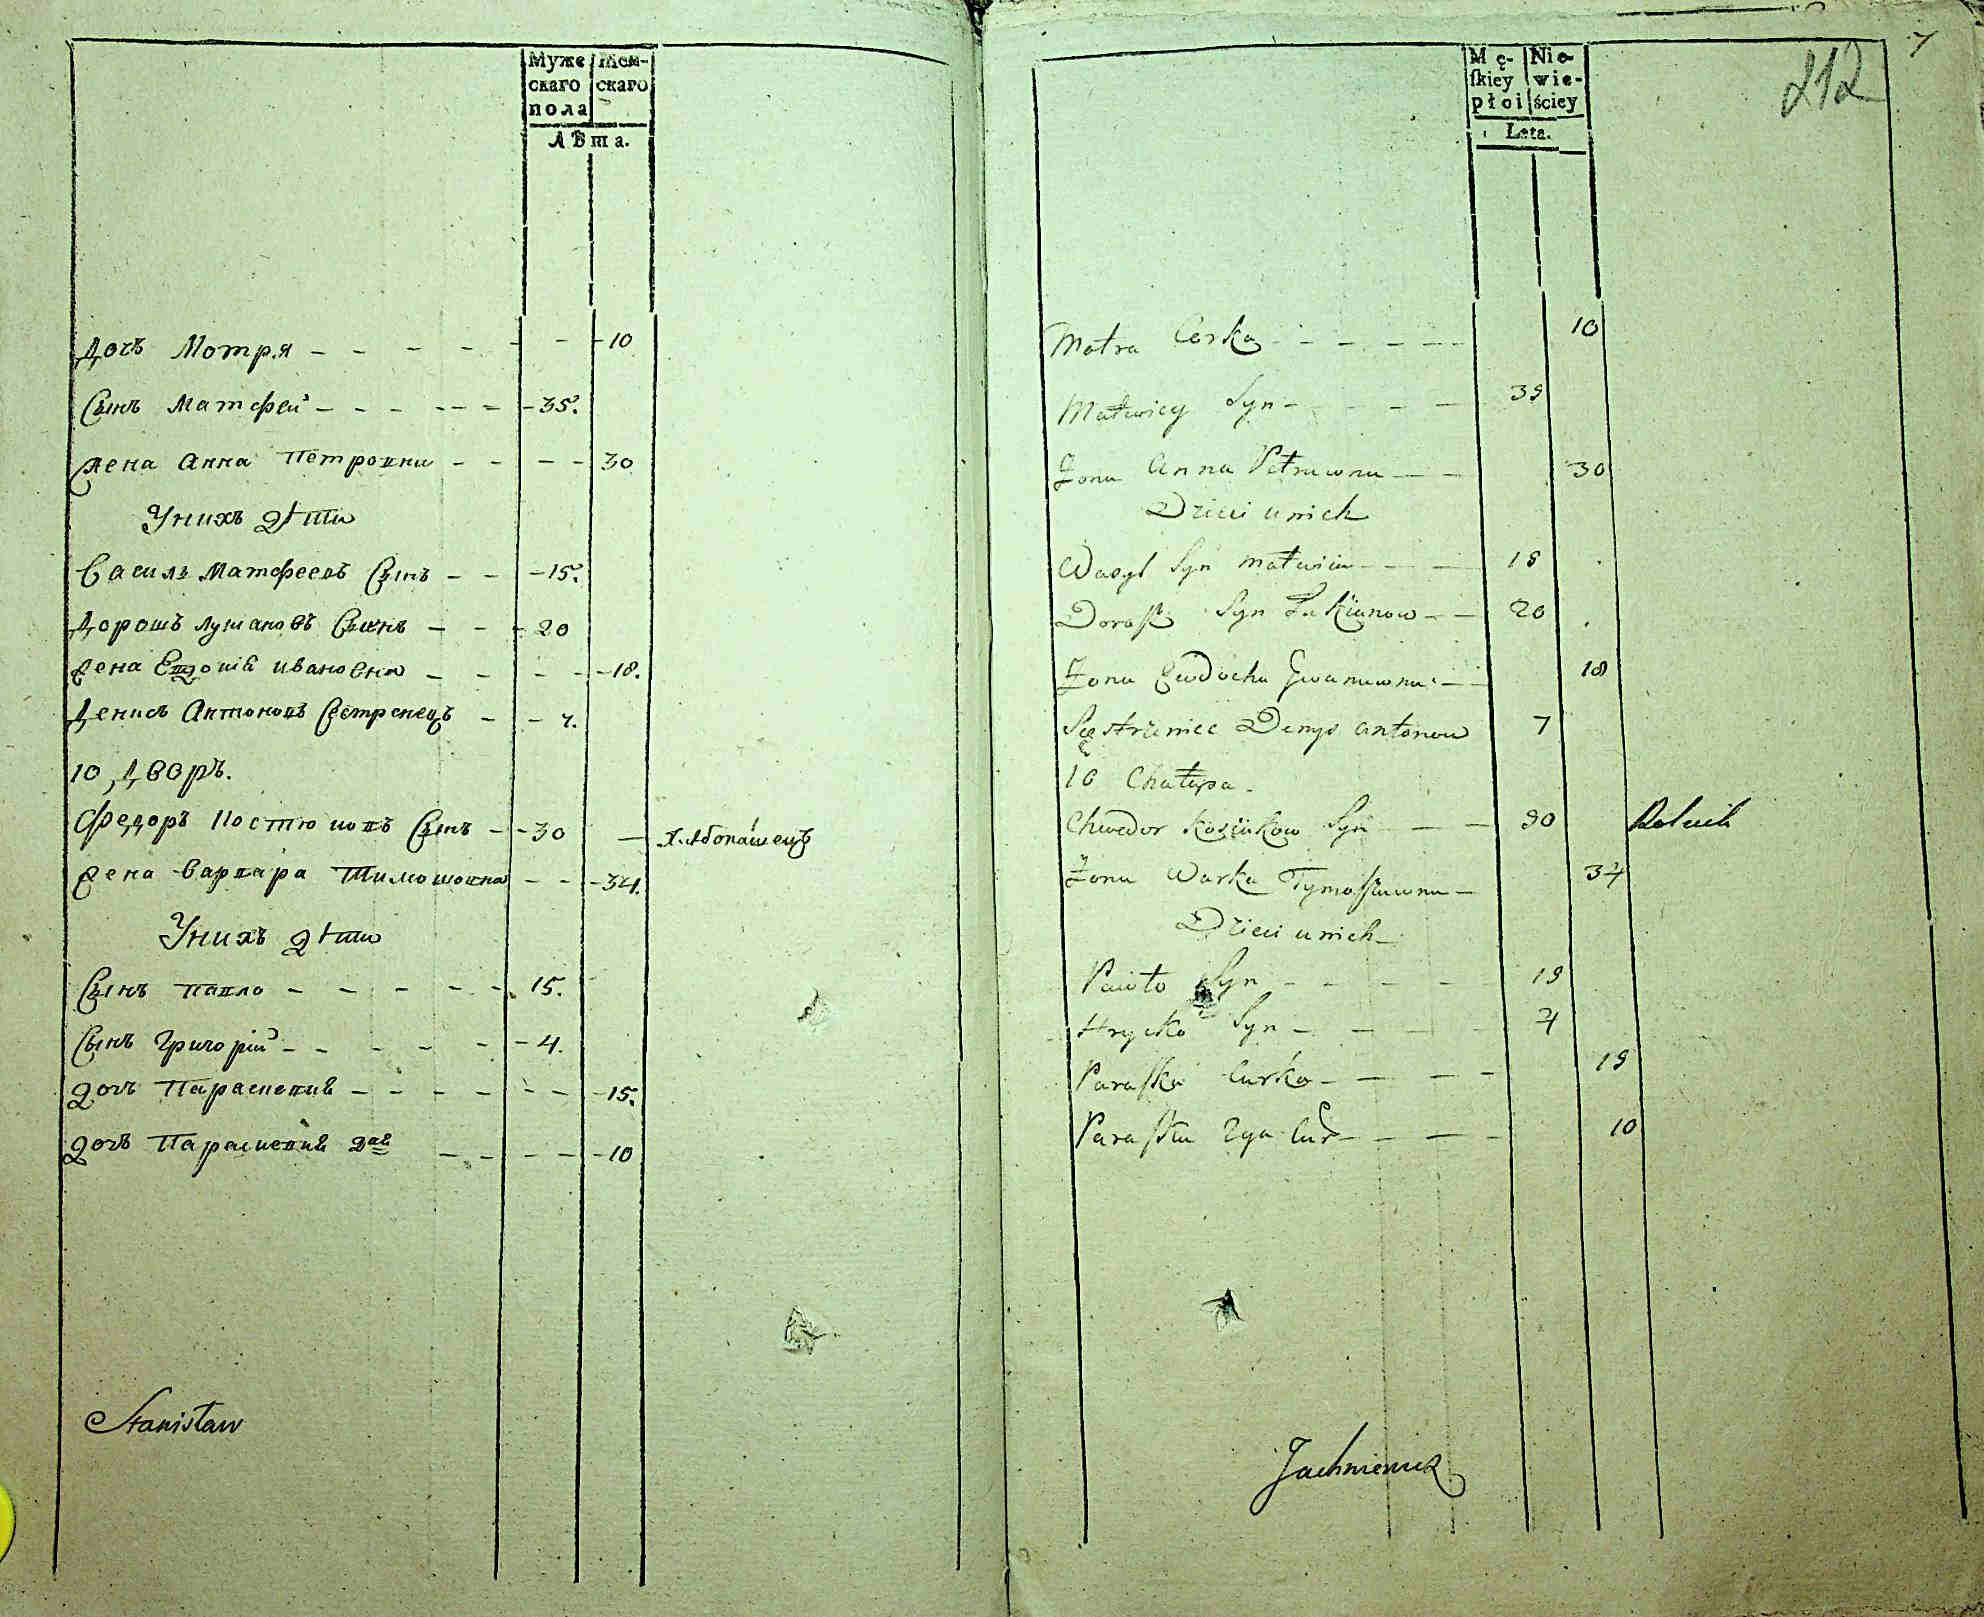 Муже скаго пола
Жен- скаго
Лѣта.
Дочь Мотря 10
Сынъ Матфей 35.
Жена Анна Петровна 30
У нихъ дѣти
Василь Матфеевъ Сынъ 15.
Дорошъ Лукіановъ Сынъ 20
Жена Евдокіѣ Ивановна 18.
Денисъ Антоновъ Сестренецъ 7.
10 Дворъ.
Федоръ Костюковъ Сынъ 30 Хлѣбопашецъ
Жена Варвара Тимошовна 34.
У нихъ дѣти
Сынъ Павло 15.
Сынъ Григорій 4.
Дочь Параскевиѣ 15.
Дочь Параскевиѣ 2аѣ 10
Stanisław
Mę- skiey płci
Nie- wie- ściey
Leta.
212
7
Motra Corka 10
Matwiey Syn 35
Żona Anna Petruwna 30
Dzieci u nich
Wasyl Syn Matwiiw 15
Dorosz Syn Łukianow 20
Żona Ewdocha Jwanuwna 18
Sięstrzeniec Denys Antonow 7
10 Chałupa.
Chwedor Kościukow Syn 30 Rolnik
Żona Warka Tymoszuwna 34
Dzieci u nich
Pawło Syn 15
Hryćko Syn 4
Paraska Curka 15
Paraska 2ga Cur 10
Jachniewicz